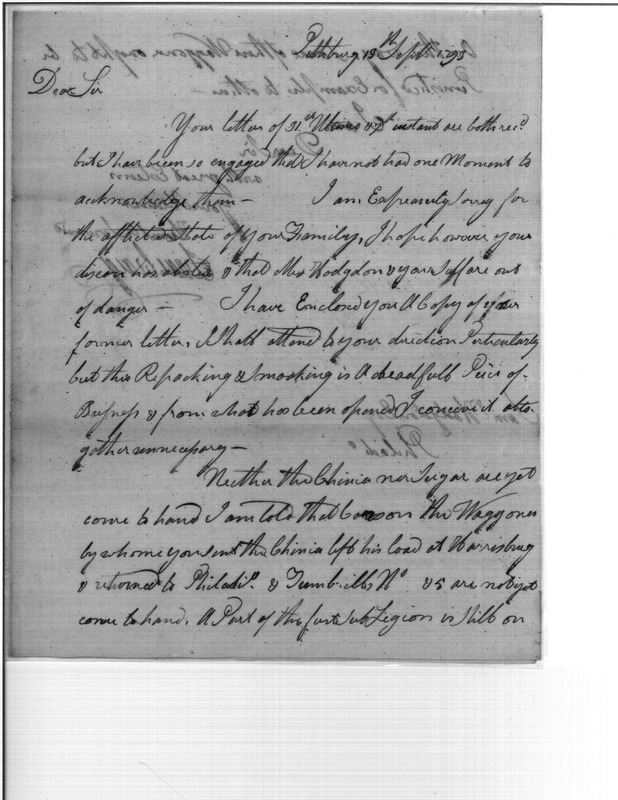 Pittsburg 13th Septr 1793
Dear Sir
Your letter of 31st Ultimo & 7th instant are both recd
but I have been so engaged that I have not had one Moment to
acknowledge them — I am Expressly Sorry for
the afflicted state of your Family, I hope however your
disease has abated & that Mrs Hodgdon & yourself are out
of danger — I have Enclosed you A Copy of your
former letter, I shall attend to your direction Perticularly
but this Repacking & Smoaking is A dreadfull Peice of
Business & from what has been opened I conceive it alto-
gather unnecessary —
Neither the Chinia nor Sugar are yet
come to hand I am told that Carson the Waggoner
by whome you sent the Chinia left his load at Harrisburg
& returned to Philada. & Turnbills No & 5 are not yet
come to hand. A Part of the first Sub Legion is Still on